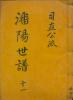 司直公派
潘陽世譜 十一